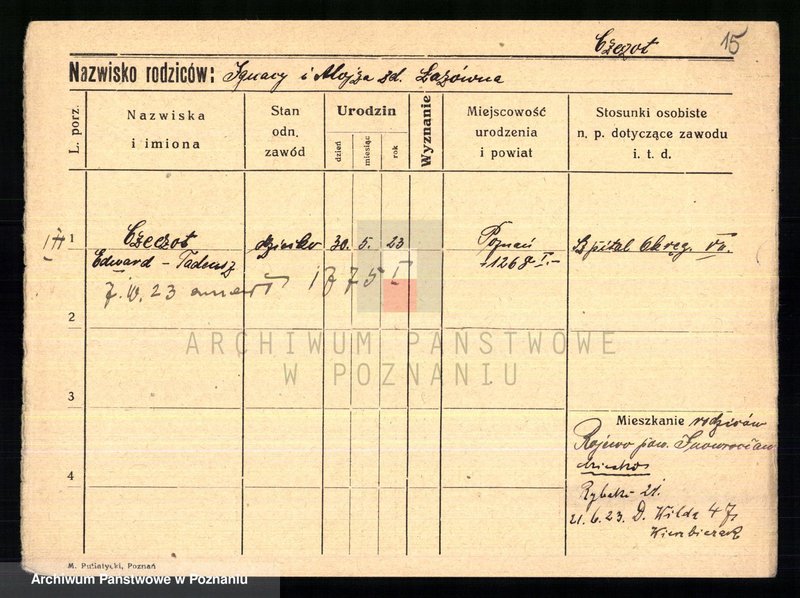 Czeczot 15
Nazwisko rodziców: Ignacy i Alojza zd. Łazówna
L. porz.
Nazwiska
i imiona
Stan
odn.
zawód
Urodzin
dzień
miesiąc
rok
Wyznanie
Miejscowość
urodzenia
i powiat
Stosunki osobiste
n. p. dotyczące zawodu
i. t. d.
1
Czeczot
Edward - Tadeusz
dziecko 30. 5. 23
Poznań
1268 I.-
Szpital Okręg. VII.
23 1775 I
2
ARCHIWUM PAŃSTWOWE
W POZNANIU
3
Mieszkanie rodziców
Rojewo pow. Inowrocław
dziecko
4
Rybaki 21.
21.6.23. D. Wilda 47
M. Putiatycki, Poznań
Archiwum Państwowe w Poznaniu